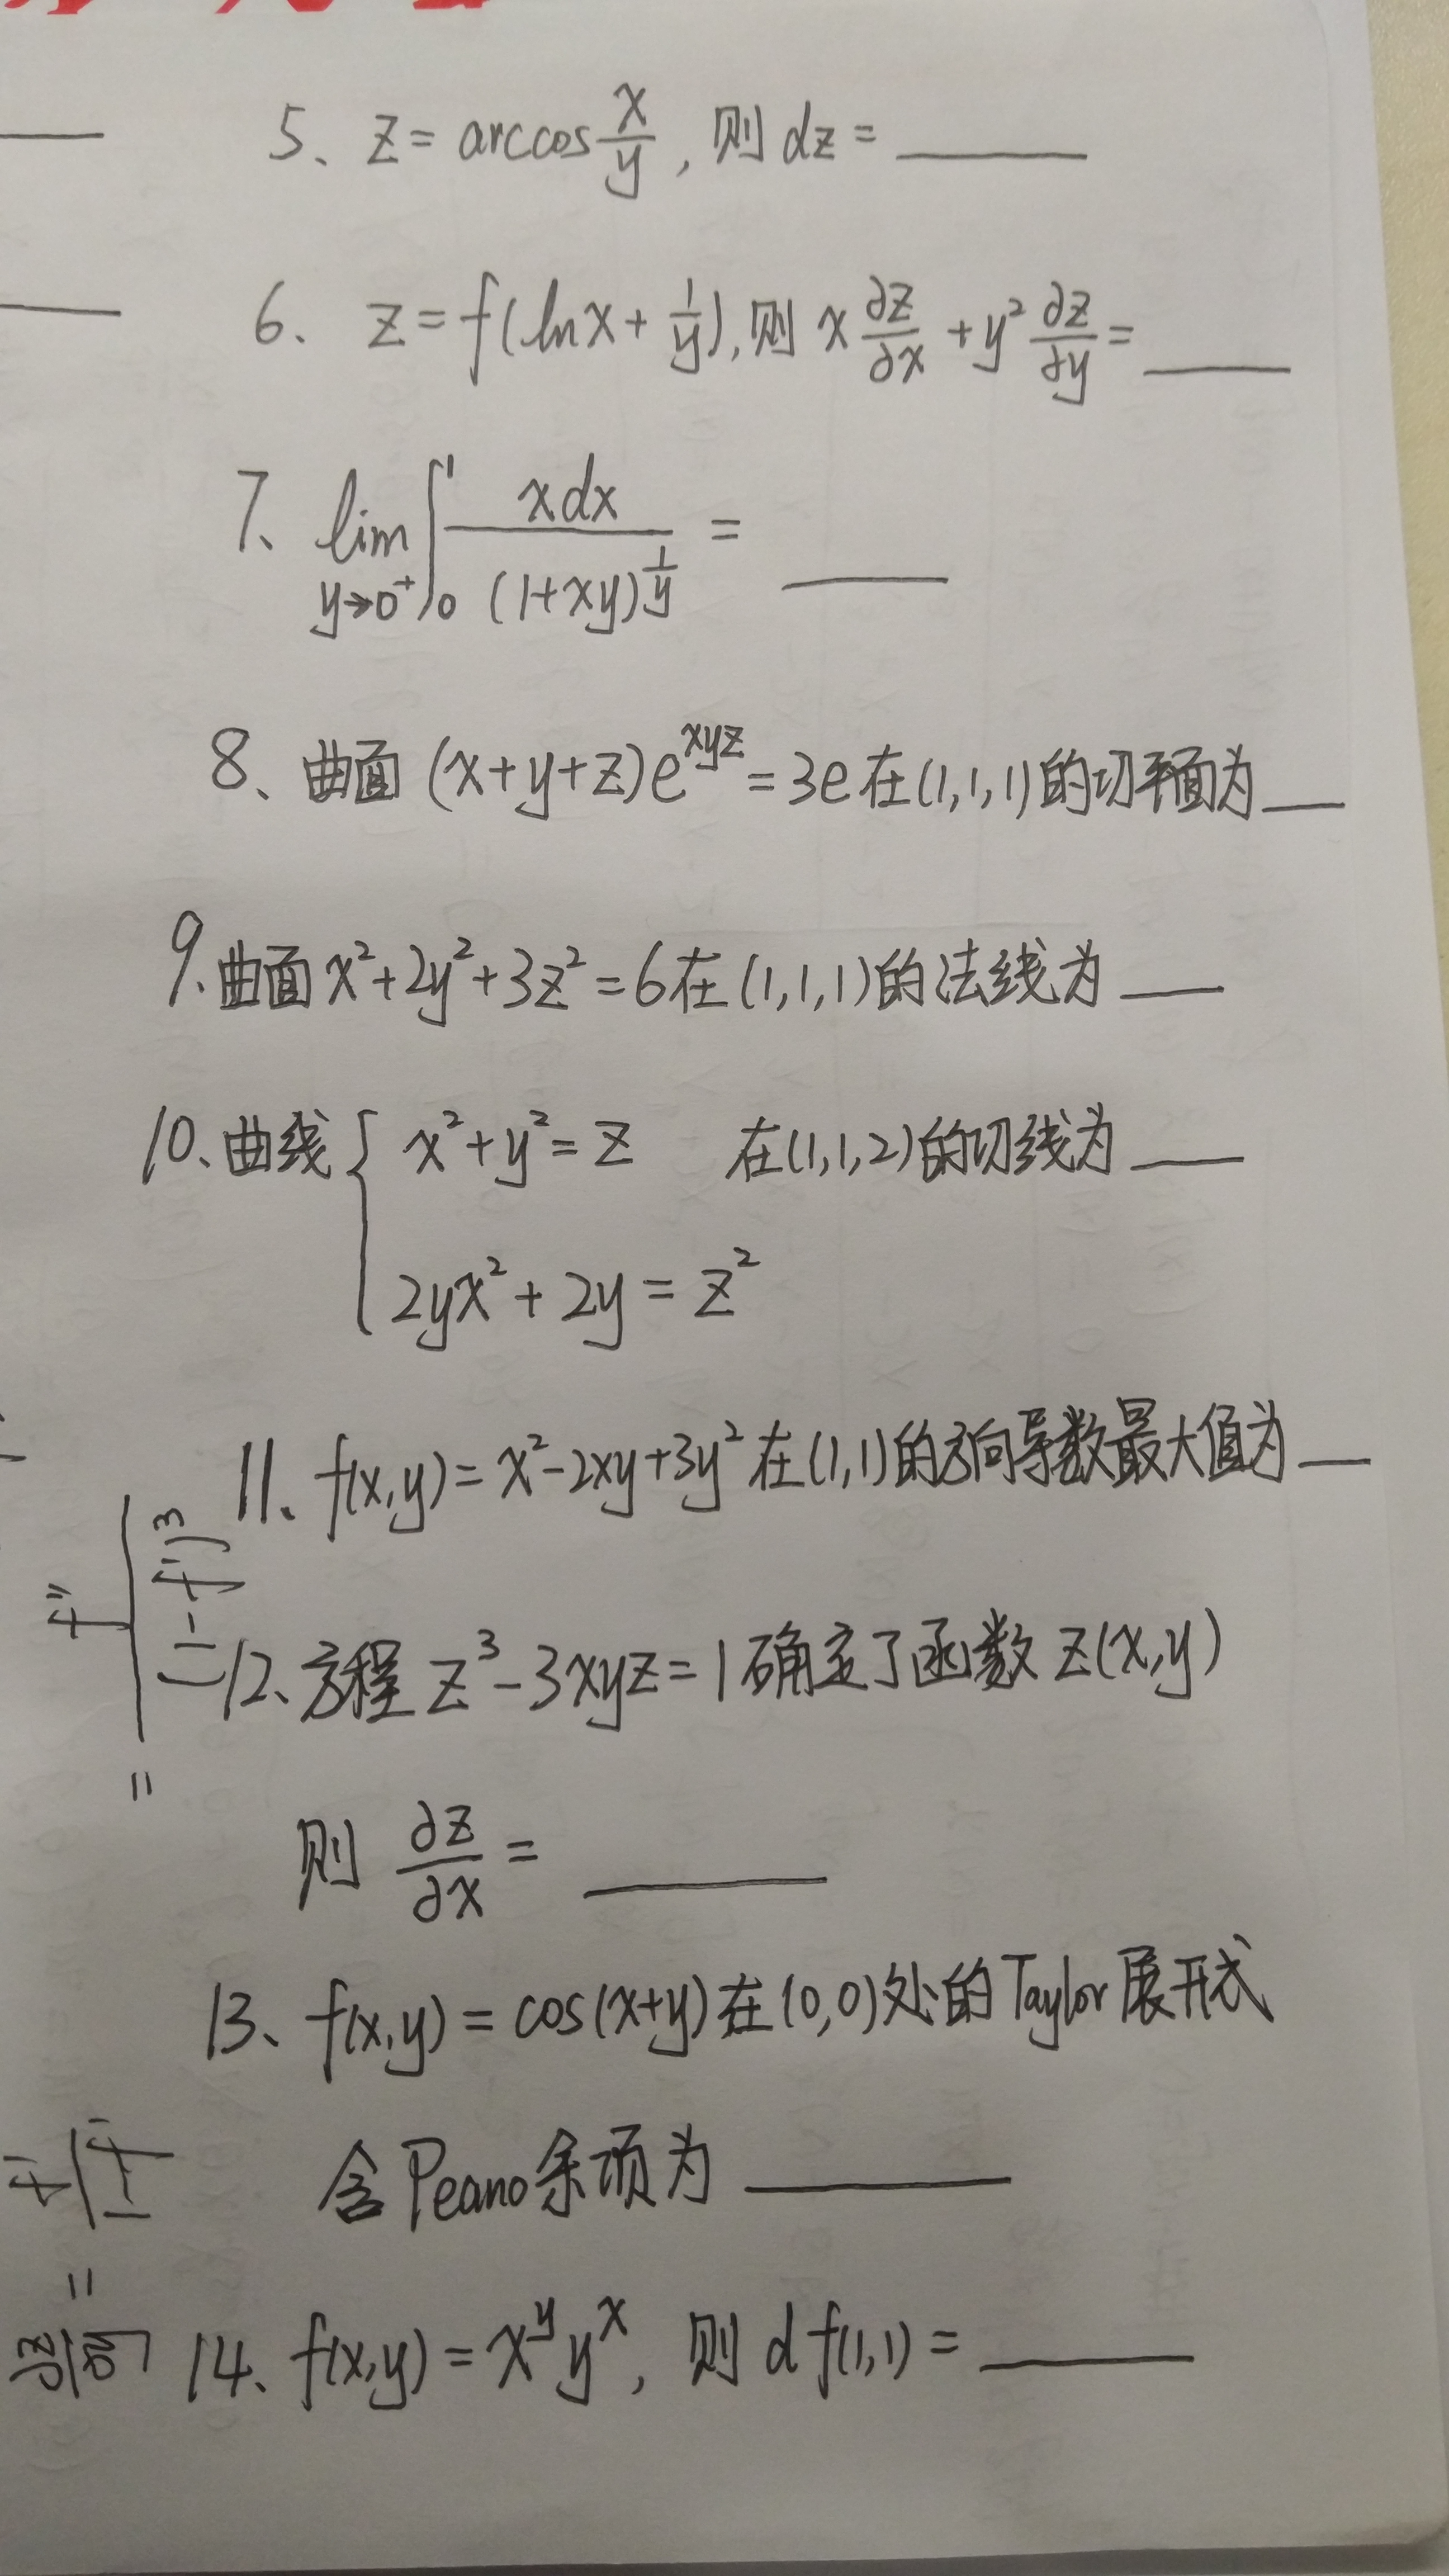 5、z = arccos x/y , 则 dz = ____
6、z = f(lnx + 1/y), 则 x ∂z/∂x + y² ∂z/∂y = ____
7、lim_{y→0⁺} ∫₀¹ xdx/(1+xy)^{1/y} = ____
8、曲面 (x+y+z)e^{xyz} = 3e 在(1,1,1)的切平面为____
9、曲面 x²+2y²+3z² = 6 在(1,1,1)的法线为____
10、曲线 { x²+y² = z 在(1,1,2)的切线为____
2yx²+2y = z²
11、f(x,y) = x²-2xy+3y² 在(1,1)的方向导数最大值为____
12、方程 z³-3xyz = 1 确定了函数 z(x,y)
则 ∂z/∂x = ____
13、f(x,y) = cos(x+y) 在(0,0)处的Taylor展开式
含Peano余项为____
14、f(x,y) = x^y y^x, 则 d f(1,1) = ____
= f''/(1-f')³